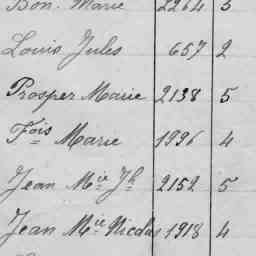 Bon. Marie 2264 5
Louis Jules 657 2
Prosper Marie 2138 5
Fois Marie 1996 4
Jean Mie Jh 2152 5
Jean Mie Nicolas 1918 4